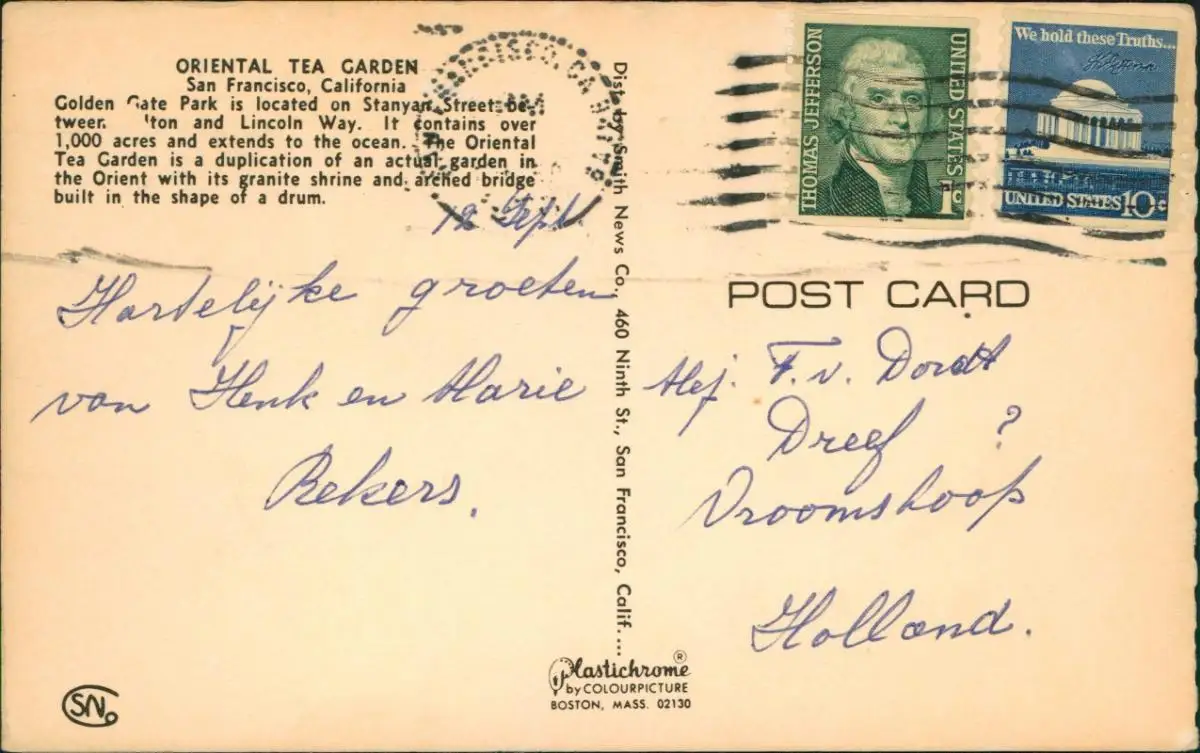 ORIENTAL TEA GARDEN
San Francisco, California
Golden Gate Park is located on Stanyan Street be-
tween and Lincoln Way. It contains over
1,000 acres and extends to the ocean. The Oriental
Tea Garden is a duplication of an actual garden in
the Orient with its granite shrine and arched bridge
built in the shape of a drum.
12 Sept.
Hartelijke groeten
van Henk en Marie
Rekers.
SN
Dist. by Smith News Co., 460 Ninth St., San Francisco, Calif....
Plastichrome®
by COLOURPICTURE
BOSTON, MASS. 02130
FRANCISCO, CA
PM
THOMAS JEFFERSON
UNITED STATES
1c
We hold these Truths...
UNITED STATES 10c
POST CARD
Mej. F. v. Dordt
Dreef ?
Vroomshoop
Holland.